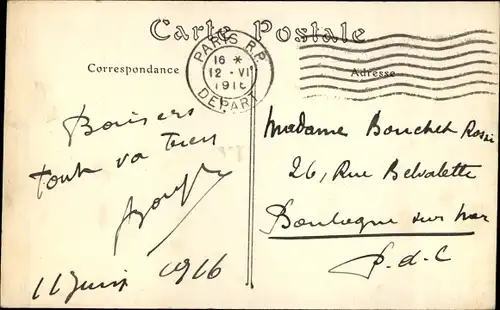 Carte Postale
Correspondance
Adresse
PARIS R.P.
16 *
12 - VI
1916
DEPART
Baisers
tout va bien
11 Juin 1916
Madame Bouchet
26, Rue Belvalette
Boulogne sur mer
P. d. C